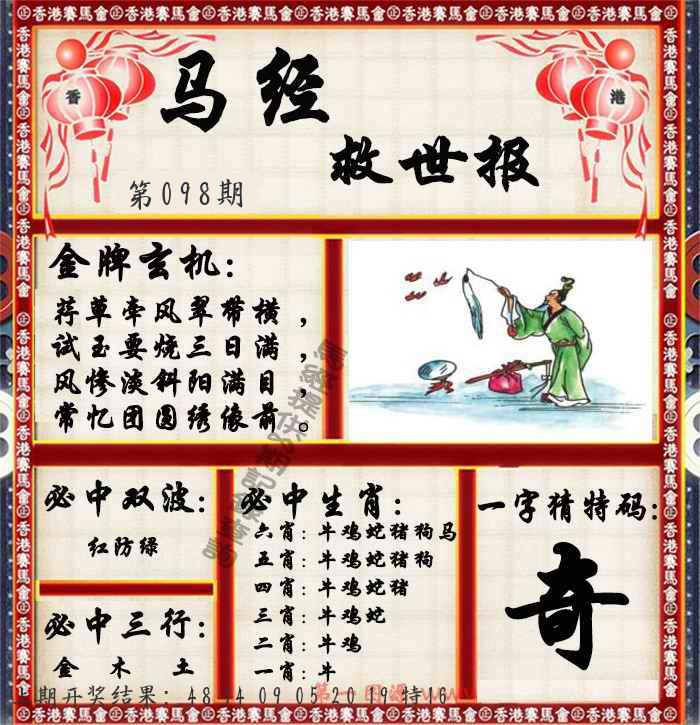 马经
救世报
香
港
第098期
金牌玄机:
荐草牵风翠带横，
试玉要烧三日满，
风惨淡斜阳满目，
常忆团圆绣像前。
必中双波:
红防绿
必中三行:
金 木 土
必中生肖:
六肖:牛鸡蛇猪狗马
五肖:牛鸡蛇猪狗
四肖:牛鸡蛇猪
三肖:牛鸡蛇
二肖:牛鸡
一肖:牛
一字猜特码:
奇
期开奖结果: 48 44 09 05 20 19 特16
第一图源
香港賽馬會